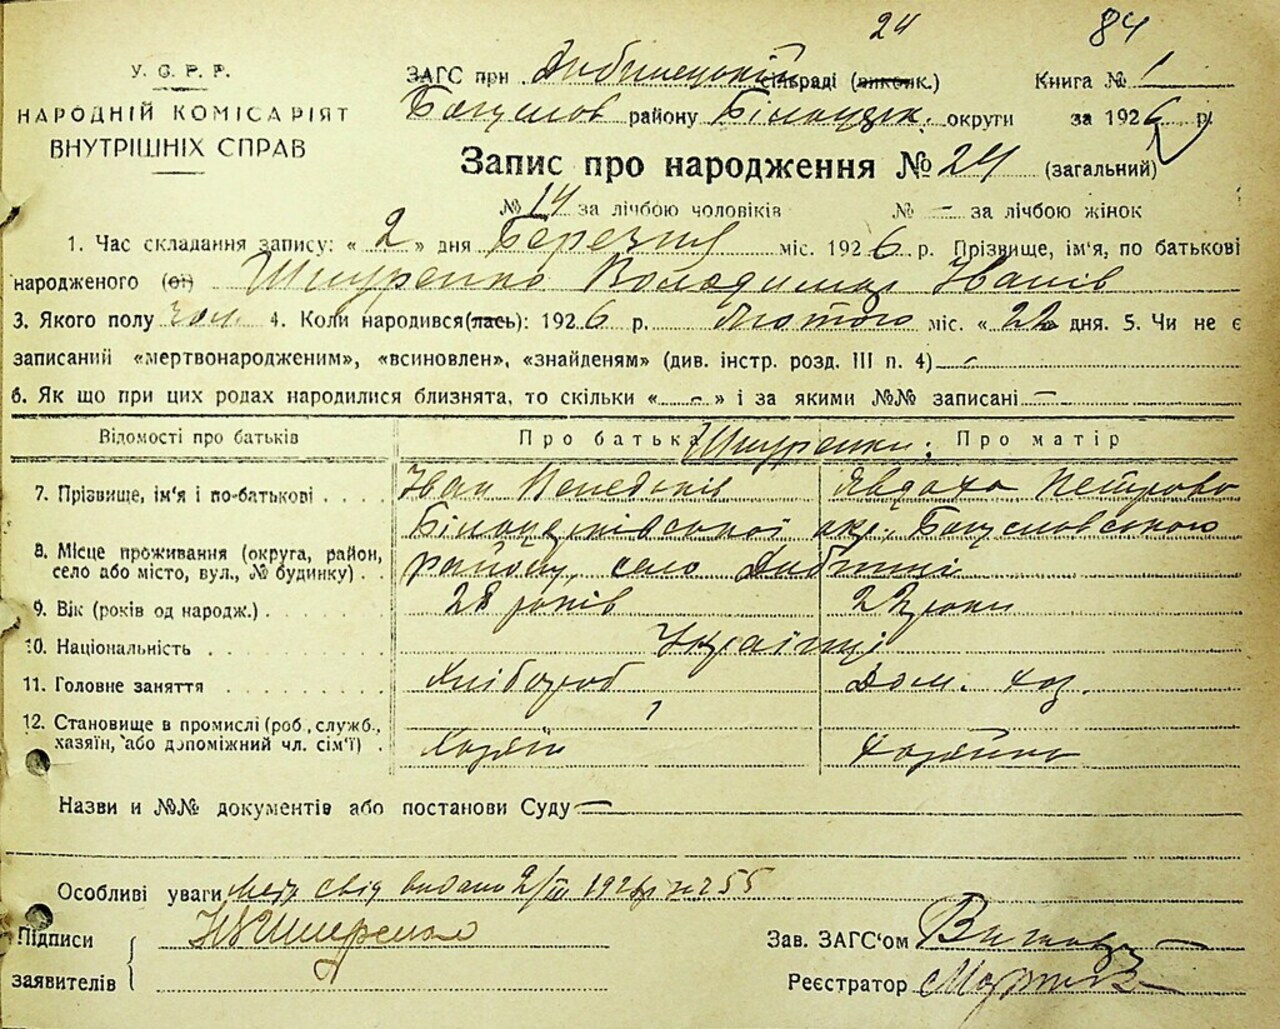 24 84
У. С. Р. Р.
НАРОДНІЙ КОМІСАРІЯТ
ВНУТРІШНІХ СПРАВ
ЗАГС при Дибинецькій сільраді (виконк.) Книга № 1
Богуслов району Білоцерк. округи за 1926 р.
Запис про народження № 24 (загальний)
№ 14 за лічбою чоловіків № – за лічбою жінок
1. Час складання запису: « 2 » дня Березня міс. 1926 р. Прізвище, ім'я, по батькові
народженого (ої) Шмуренко Володимир Іванів
3. Якого полу чол. 4. Коли народився(лась): 1926 р. Лютого міс. « 22 дня. 5. Чи не є
записаний «мертвонародженим», «всиновлен», «знайденям» (див. інстр. розд. III п. 4) –
6. Як що при цих родах народилися близнята, то скільки « – » і за якими №№ записані –
Відомості про батьків Про батька Шмуренки: Про матір
7. Прізвище, ім'я і по-батькові . . . . Іван Явдоха Петрова
8. Місце проживання (округа, район, село або місто, вул., № будинку) . . Білоцерківської окр. Богуславського
району, село Дибинці
9. Вік (років од народж.) . . . . . . 28 років 22 роки
10. Національність . . . . . . . . . Українці
11. Головне заняття . . . . . . . . . Хлібороб Дом. хоз.
12. Становище в промислі (роб., служб., хазяїн, або допоміжний чл. сім'ї) . Хозяїн Хозяйка
Назви и №№ документів або постанови Суду –
Особливі уваги свід видано 2/III 1926 р № 255
Підписи
заявителів Шмуренко
Зав. ЗАГС'ом
Реєстратор